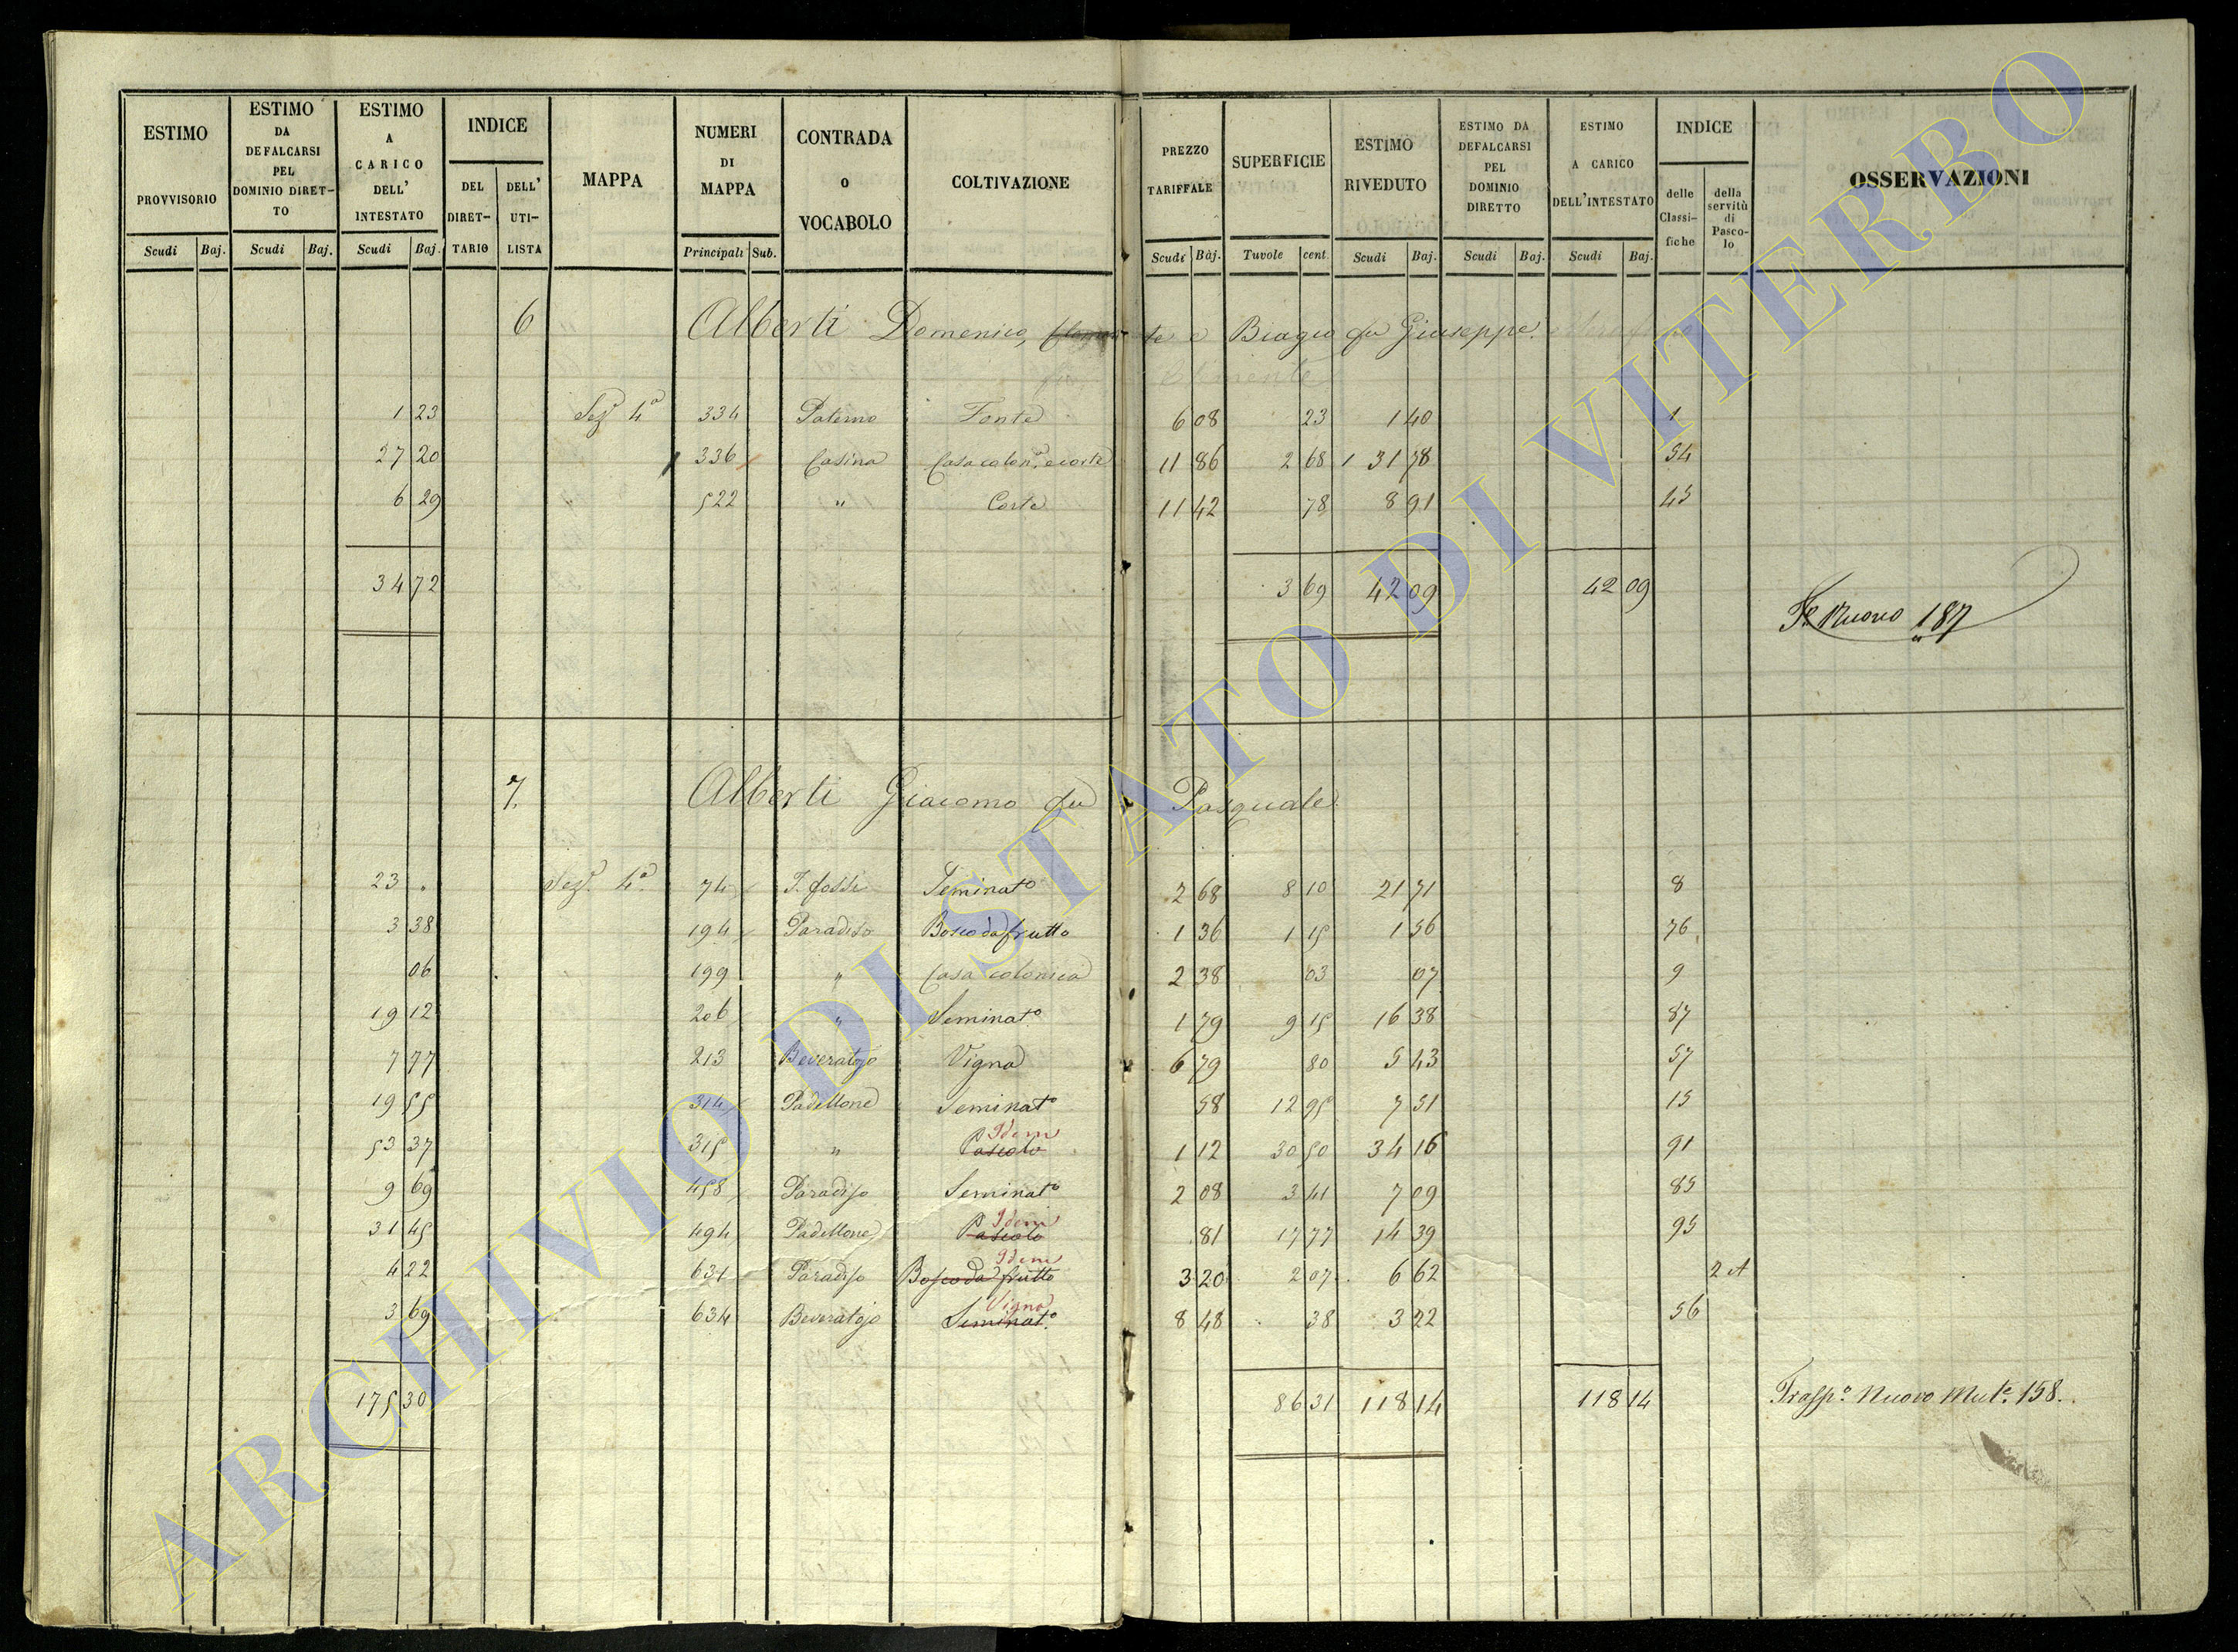 ESTIMO PROVVISORIO Scudi Baj.
ESTIMO DA DEFALCARSI PEL DOMINIO DIRET-TO Scudi Baj.
ESTIMO A CARICO DELL' INTESTATO Scudi Baj.
INDICE DEL DIRET-TARIO DELL' UTI-LISTA
MAPPA
NUMERI DI MAPPA Principali Sub.
CONTRADA o VOCABOLO
COLTIVAZIONE
PREZZO TARIFFALE Scudi Baj.
SUPERFICIE Tavole cent.
ESTIMO RIVEDUTO Scudi Baj.
ESTIMO DA DEFALCARSI PEL DOMINIO DIRETTO Scudi Baj.
ESTIMO A CARICO DELL'INTESTATO Scudi Baj.
INDICE delle Classi-fiche della servitù di Pasco-lo
OSSERVAZIONI
6 Alberti Domenico, e Biagio fu Giuseppe.
1 23 Sez. 4a 334 Paterno Fonte 6 08 23 1 40 1
27 20 336 Casina Casa colon. e corte 11 86 2 68 31 78 54
6 29 " 522 " Corte 11 42 78 8 91 45
34 72 3 69 42 09 42 09
Nuovo 187
7. Alberti Giacomo fu Pasquale
23 . Sez. 4a. 74 T. fossi Seminato 2 68 8 10 21 71 8
3 38 194 Paradiso Bosco da frutto 1 36 1 15 1 56 76
06 199 " Casa colonica 2 38 03 07 9
19 12 206 " Seminato 1 79 9 15 16 38 87
7 77 213 Beveratojo Vigna 6 79 80 5 43 57
19 55 314 Padellone Seminato 58 12 95 7 51 15
53 37 315 " Pascolo Idem 1 12 30 50 34 16 91
9 69 458 Paradiso Seminato 2 08 3 41 7 09 85
31 45 494 Padellone Pascolo Idem 81 17 77 14 39 95
4 22 631 Paradiso Bosco da frutto Idem 3 20 2 07 6 62 2 A
3 69 634 Beveratojo Seminato Vigna 8 48 38 3 22 56
175 30 86 31 118 14 118 14 Trasp.o Nuovo Mut.e 158.
ARCHIVIO DI STATO DI VITERBO